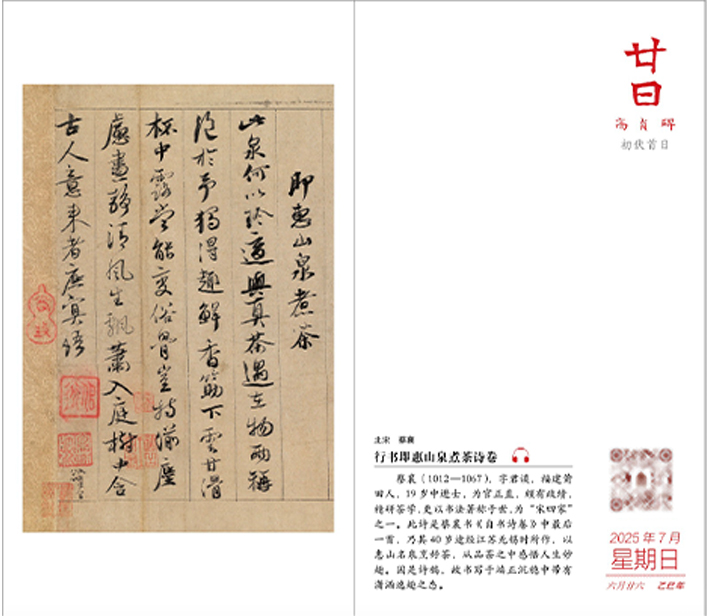 即惠山泉煮茶
此泉何以珍適與真茶遇在物兩稱
絕於予獨得趣鮮香筯下雲甘滑
杯中露當能變俗骨豈特湔塵
慮晝靜清風生飄蕭入庭樹中含
古人意來者庶冥悟
廿日
高貞碑
初伏首日
北宋 蔡襄
行书即惠山泉煮茶诗卷
蔡襄（1012—1067），字君谟，福建莆
田人，19岁中进士，为官正直，颇有政绩，
精研茶学，更以书法著称于世，为“宋四家”
之一。此诗是蔡襄书《自书诗卷》中最后
一首，乃其40岁途经江苏无锡时所作，以
惠山名泉烹好茶，从品茶之中感悟人生妙
趣。因是诗稿，故书写于端正沉稳中带有
潇洒逸趣之态。
2025年7月
星期日
六月廿六 乙巳年